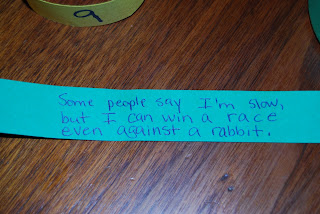 9
Some people say I'm slow,
but I can win a race
even against a rabbit.